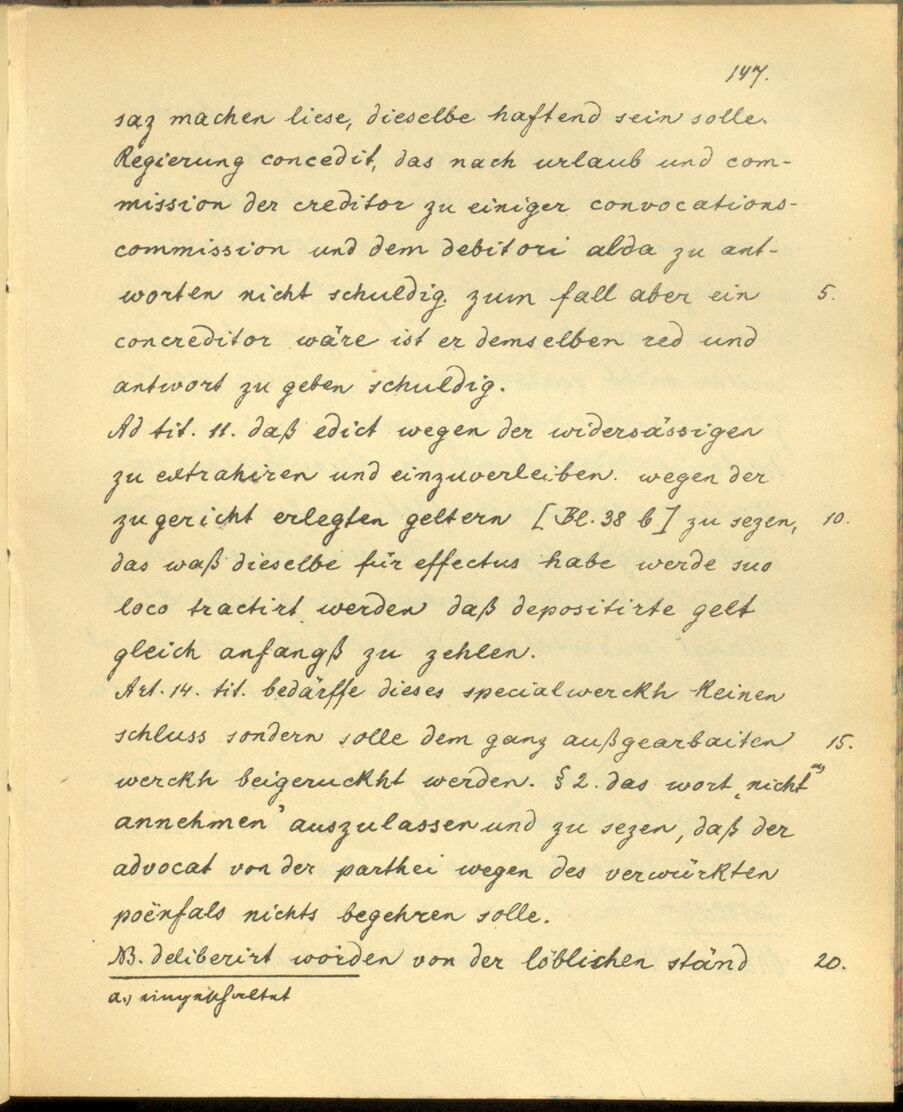 147.
saz machen liese, dieselbe haftend sein solle.
Regierung concedit, das nach urlaub und com-
mission der creditor zu einiger convocations-
commission und dem debitori alda zu ant-
worten nicht schuldig. zum fall aber ein 5.
concreditor wäre ist er demselben red und
antwort zu geben schuldig.
Ad tit. 11. daß edict wegen der widersässigen
zu extrahiren und einzuverleiben. wegen der
zu gericht erlegten geltern [Bl. 38 b] zu sezen, 10.
das waß dieselbe für effectus habe werde suo
loco tractirt werden daß depositirte gelt
gleich anfangß zu zehlen.
Art. 14. tit. bedärffe dieses specialwerckh keinen
schluss sondern solle dem ganz außgearbaiten 15.
werckh beigeruckht werden. § 2. das wort „nicht a)
annehmen" auszulassen und zu sezen, daß der
advocat von der parthei wegen des verwürkten
poënfals nichts begehren solle.
NB. deliberirt worden von der löblichen ständ 20.
a.) eingeschaltet